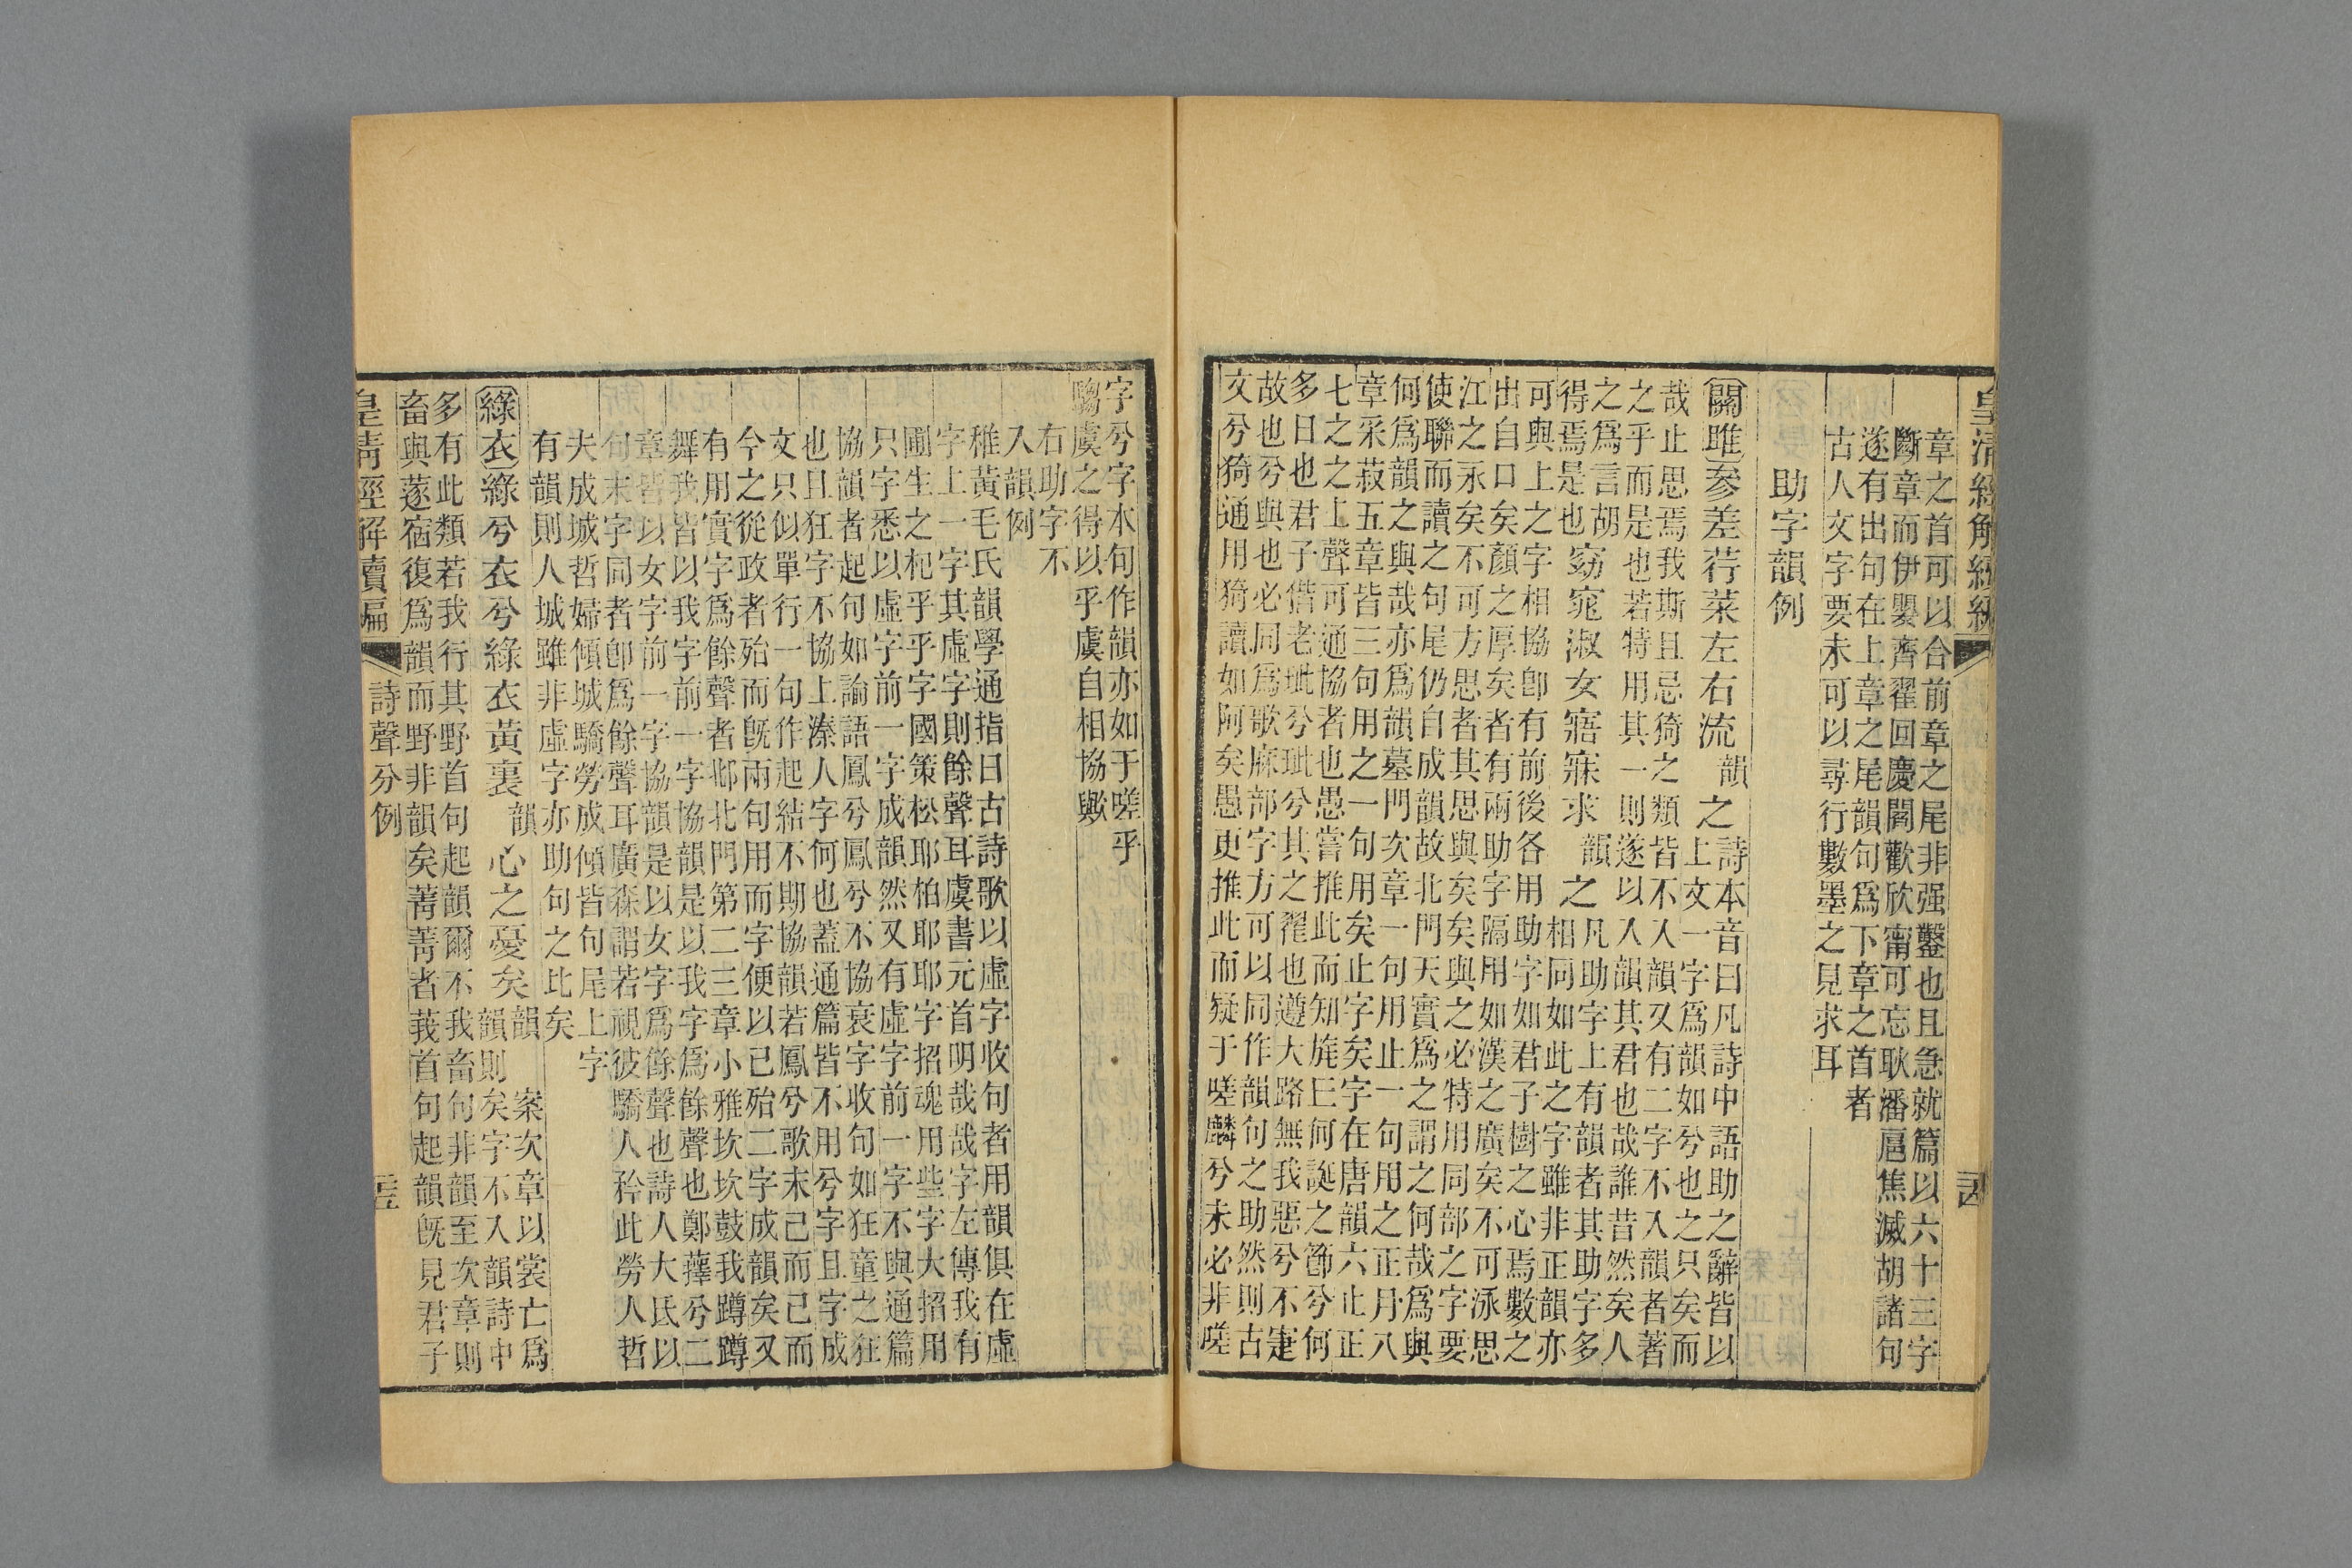 皇清經解續編
章之首可以合前章之尾非强鑿也且急就篇以六十三字
斷章而伊嬰齊翟回慶閻歡欣甯可忘耿潘扈焦滅胡諸句
遂有出句在上章之尾韻句爲下章之首者
古人文字要未可以尋行數墨之見求耳
助字韻例
關雎 參差荇菜左右流韻之 詩本音曰凡詩中語助之辭皆以
上文一字爲韻如兮也之只矣而
哉止思焉我斯且忌猗之類皆不入韻又有二字不入韻者著
之乎而是也若特用其一則遂以入韻其君也哉誰昔然矣人
之爲言胡
得焉是也 窈窕淑女寤寐求韻之 凡助字上有韻者其助字多
相同如此之字雖非正韻亦
可與上之字相協卽有前後各用助字如君子樹之心焉數之
出自口矣顏之厚矣者有兩助字隔用如漢之廣矣不可泳思
江之永矣不可方思者其思與矣矣與之必特用同部之字要
使聯而讀之句尾仍自成韻故北門天實爲之謂之何哉爲與
何爲韻之與哉亦爲韻墓門次章一句用止一句用之正月八
章采菽五章皆三句用之一句用矣止字矣字在唐韻六止正
七之之上聲可通協者也愚嘗推此而知旄丘何誕之節兮何
多日也君子偕老玼兮玼兮其之翟也遵大路無我惡兮不寁
故也兮與也必同爲歌麻部字方可以同作韻句之助然則古
文兮猗通用猗讀如阿矣愚更推此而疑于嗟麟兮未必非嗟
字兮字本句作韻亦如于嗟乎
騶虞之得以乎虞自相協歟
右助字不
入韻例
稚黃毛氏韻學通指曰古詩歌以虛字收句者用韻俱在虛
字上一字其虛字則餘聲耳虞書元首明哉哉字左傳我有
圃生之杞乎乎字國策松耶柏耶耶字招魂用些字大招用
只字悉以虛字前一字成韻然又有虛字前一字不與通篇
協韻者起句如論語鳳兮鳳兮不協衰字收句如狂童之狂
也且狂字不協上溱人字何也蓋通篇皆不用兮字且字成
文只似單行一句作起結不期協韻若鳳兮歌末已而已而
今之從政者殆而旣兩句用而字便以已殆二字成韻矣又
有用實字爲餘聲者邶北門第二三章小雅坎坎鼓我蹲蹲
舞我皆以我字前一字協韻是以我字爲餘聲也鄭蘀兮二
章皆以女字前一字協韻是以女字爲餘聲也詩人大氐以
句末字同者卽爲餘聲耳廣森謂若視彼驕人矜此勞人哲
夫成城哲婦傾城驕勞成傾皆句尾上字
有韻則人城雖非虛字亦助句之比矣
綠衣 綠兮衣兮綠衣黃裏韻心之憂矣韻 案次章以裳亡爲
韻則矣字不入韻詩中
多有此類若我行其野首句起韻爾不我畜句非韻至次章則
畜與蓫宿復爲韻而野非韻矣菁菁者莪首句起韻旣見君子
皇清經解續編 詩聲分例